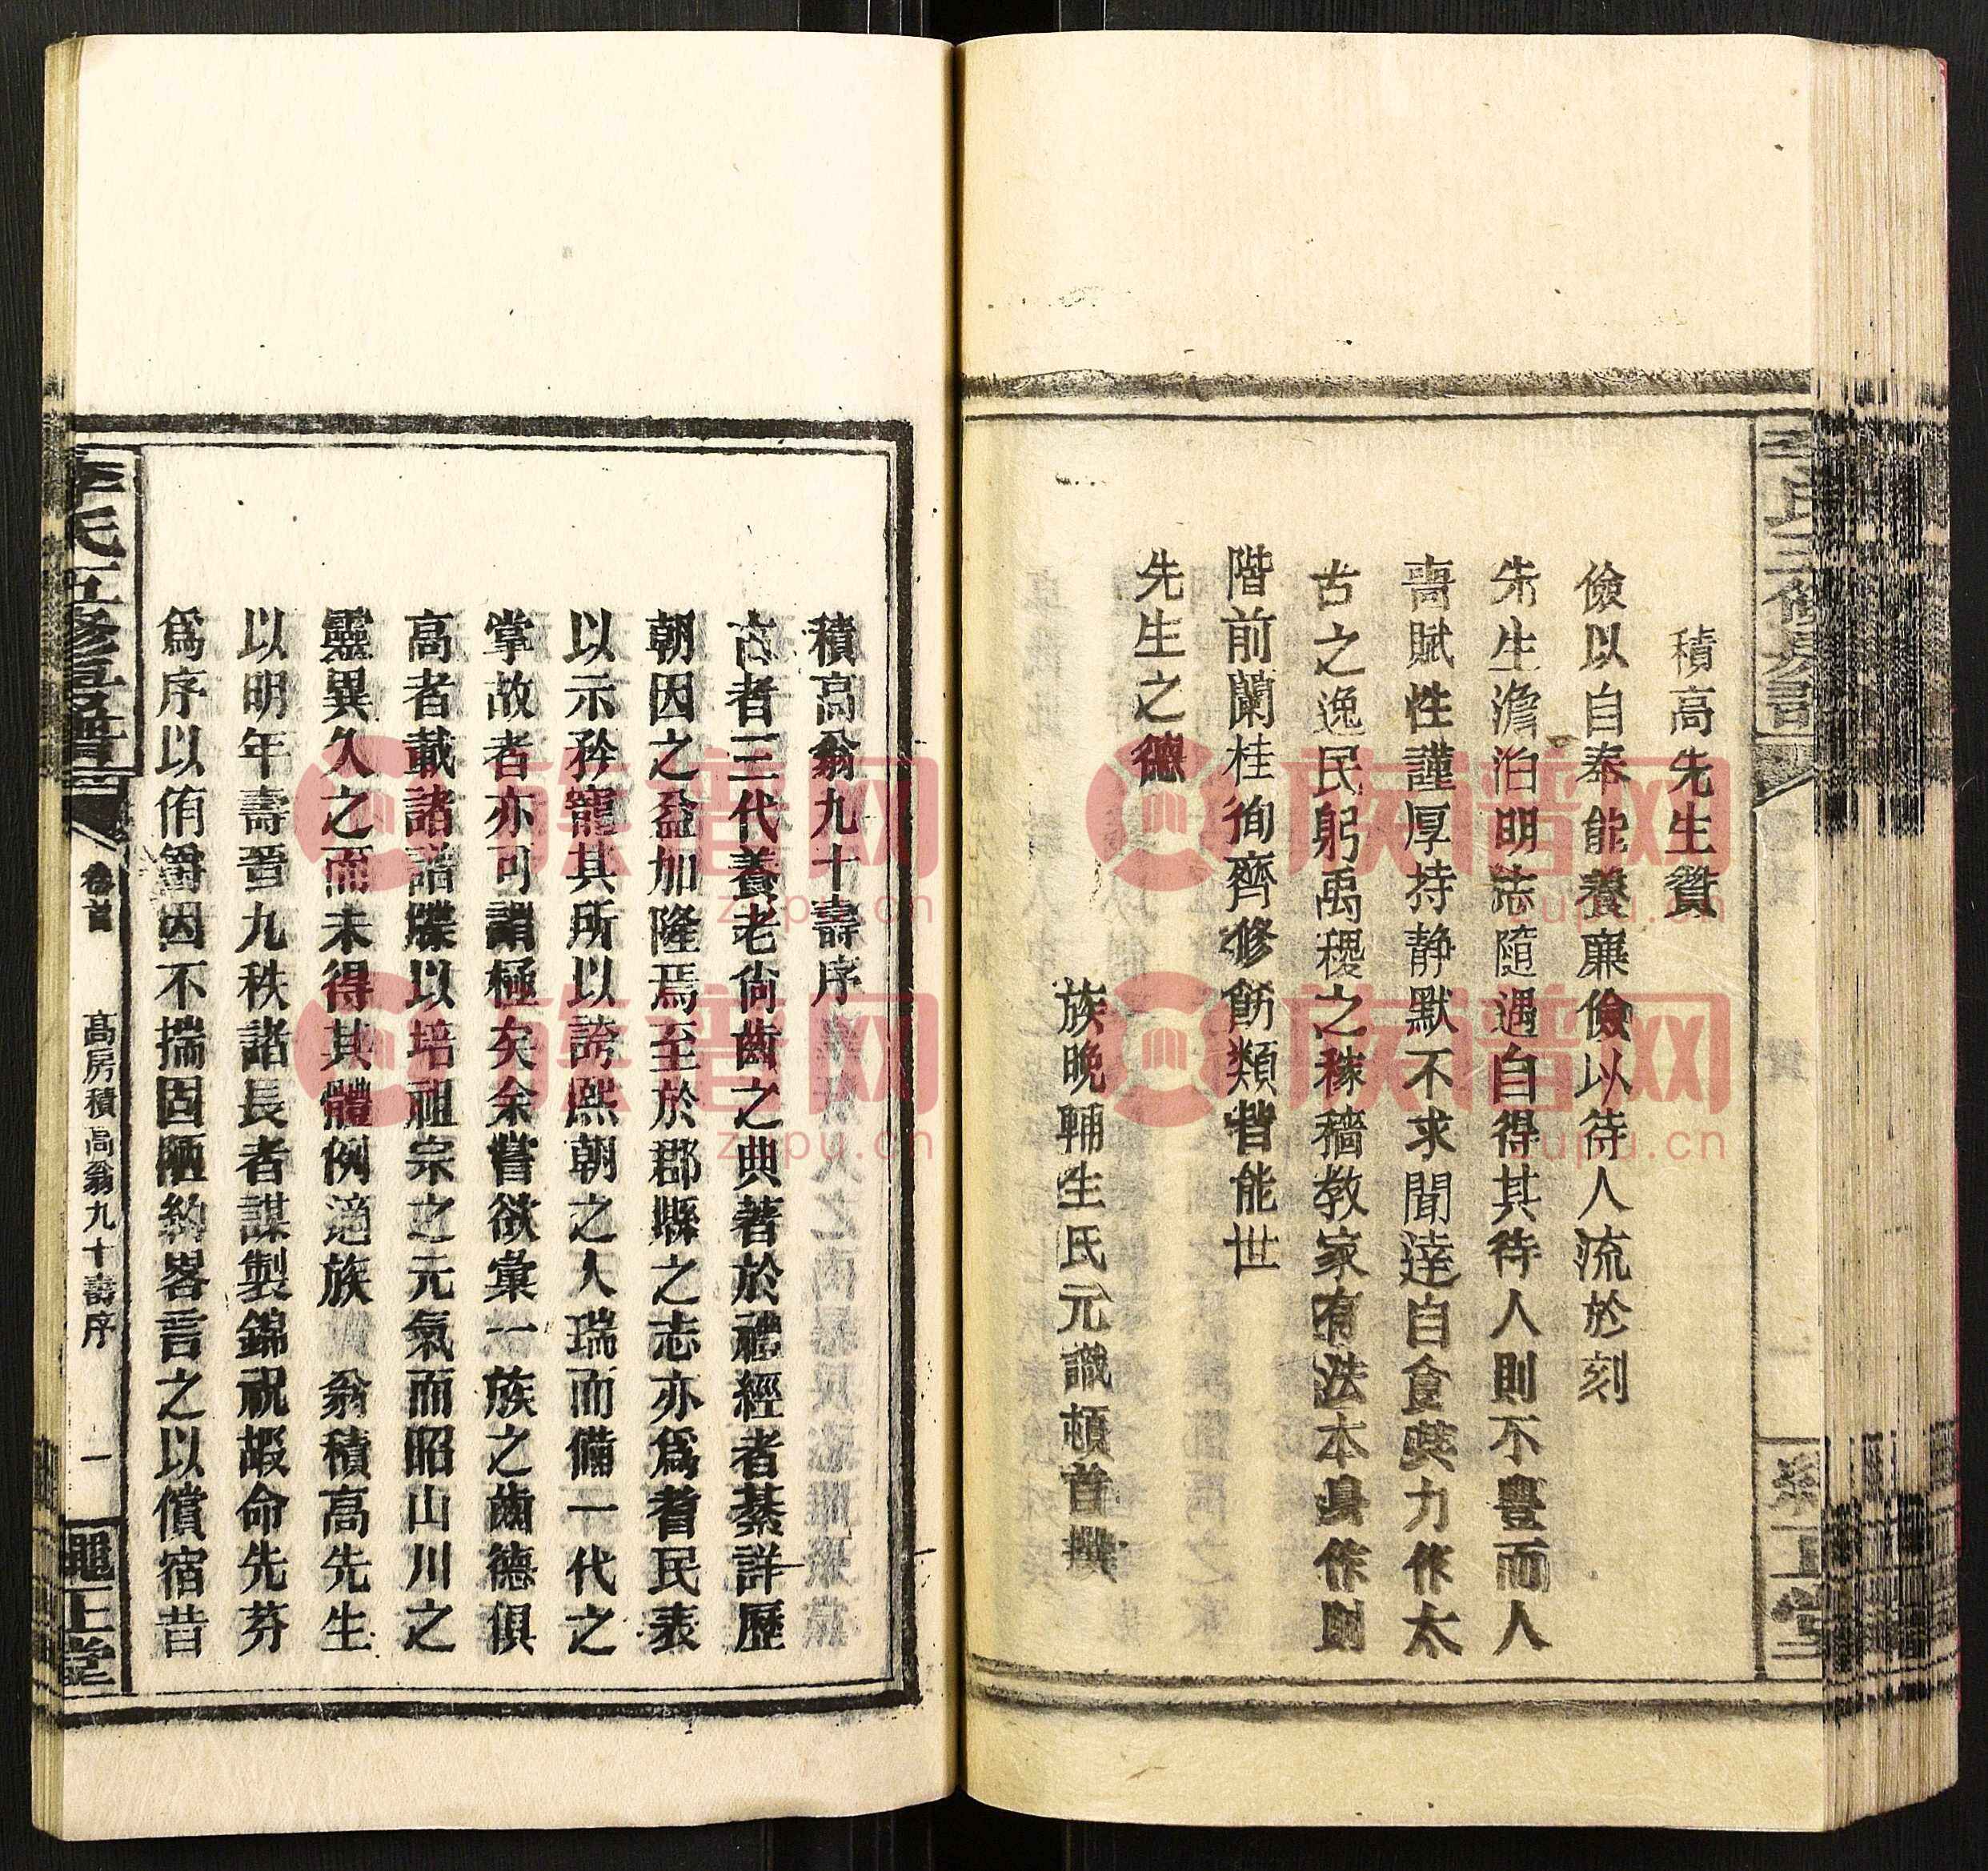 積高先生贊
儉以自奉能養廉儉以待人流於刻
先生澹泊明志隨遇自得其待人則不豐而人
嗇賦性謹厚持静默不求聞達自食其力作太
古之逸民躬禹稷之稼穡教家有法本身作則
階前蘭桂徇齊修飭類皆能世
先生之德
族晚輔生氏元識頓首撰
積高翁九十壽序
古者三代養老尙齒之典著於禮經者綦詳歷
朝因之益加隆焉至於郡縣之志亦爲耆民表
以示矜寵其所以誇熙朝之人瑞而備一代之
掌故者亦可謂極矣余嘗欲彙一族之齒德俱
高者載諸譜牒以培祖宗之元氣而昭山川之
靈異久之而未得其體例適族 翁積高先生
以明年壽晋九秩諸長者謀製錦祝嘏命先芬
爲序以侑爵因不揣固陋約畧言之以償宿昔
李氏五修房譜
卷首
高房積高翁九十壽序
一
族譜网
zupu.cn
族譜网
zupu.cn
族譜网
zupu.cn
族譜网
zupu.cn